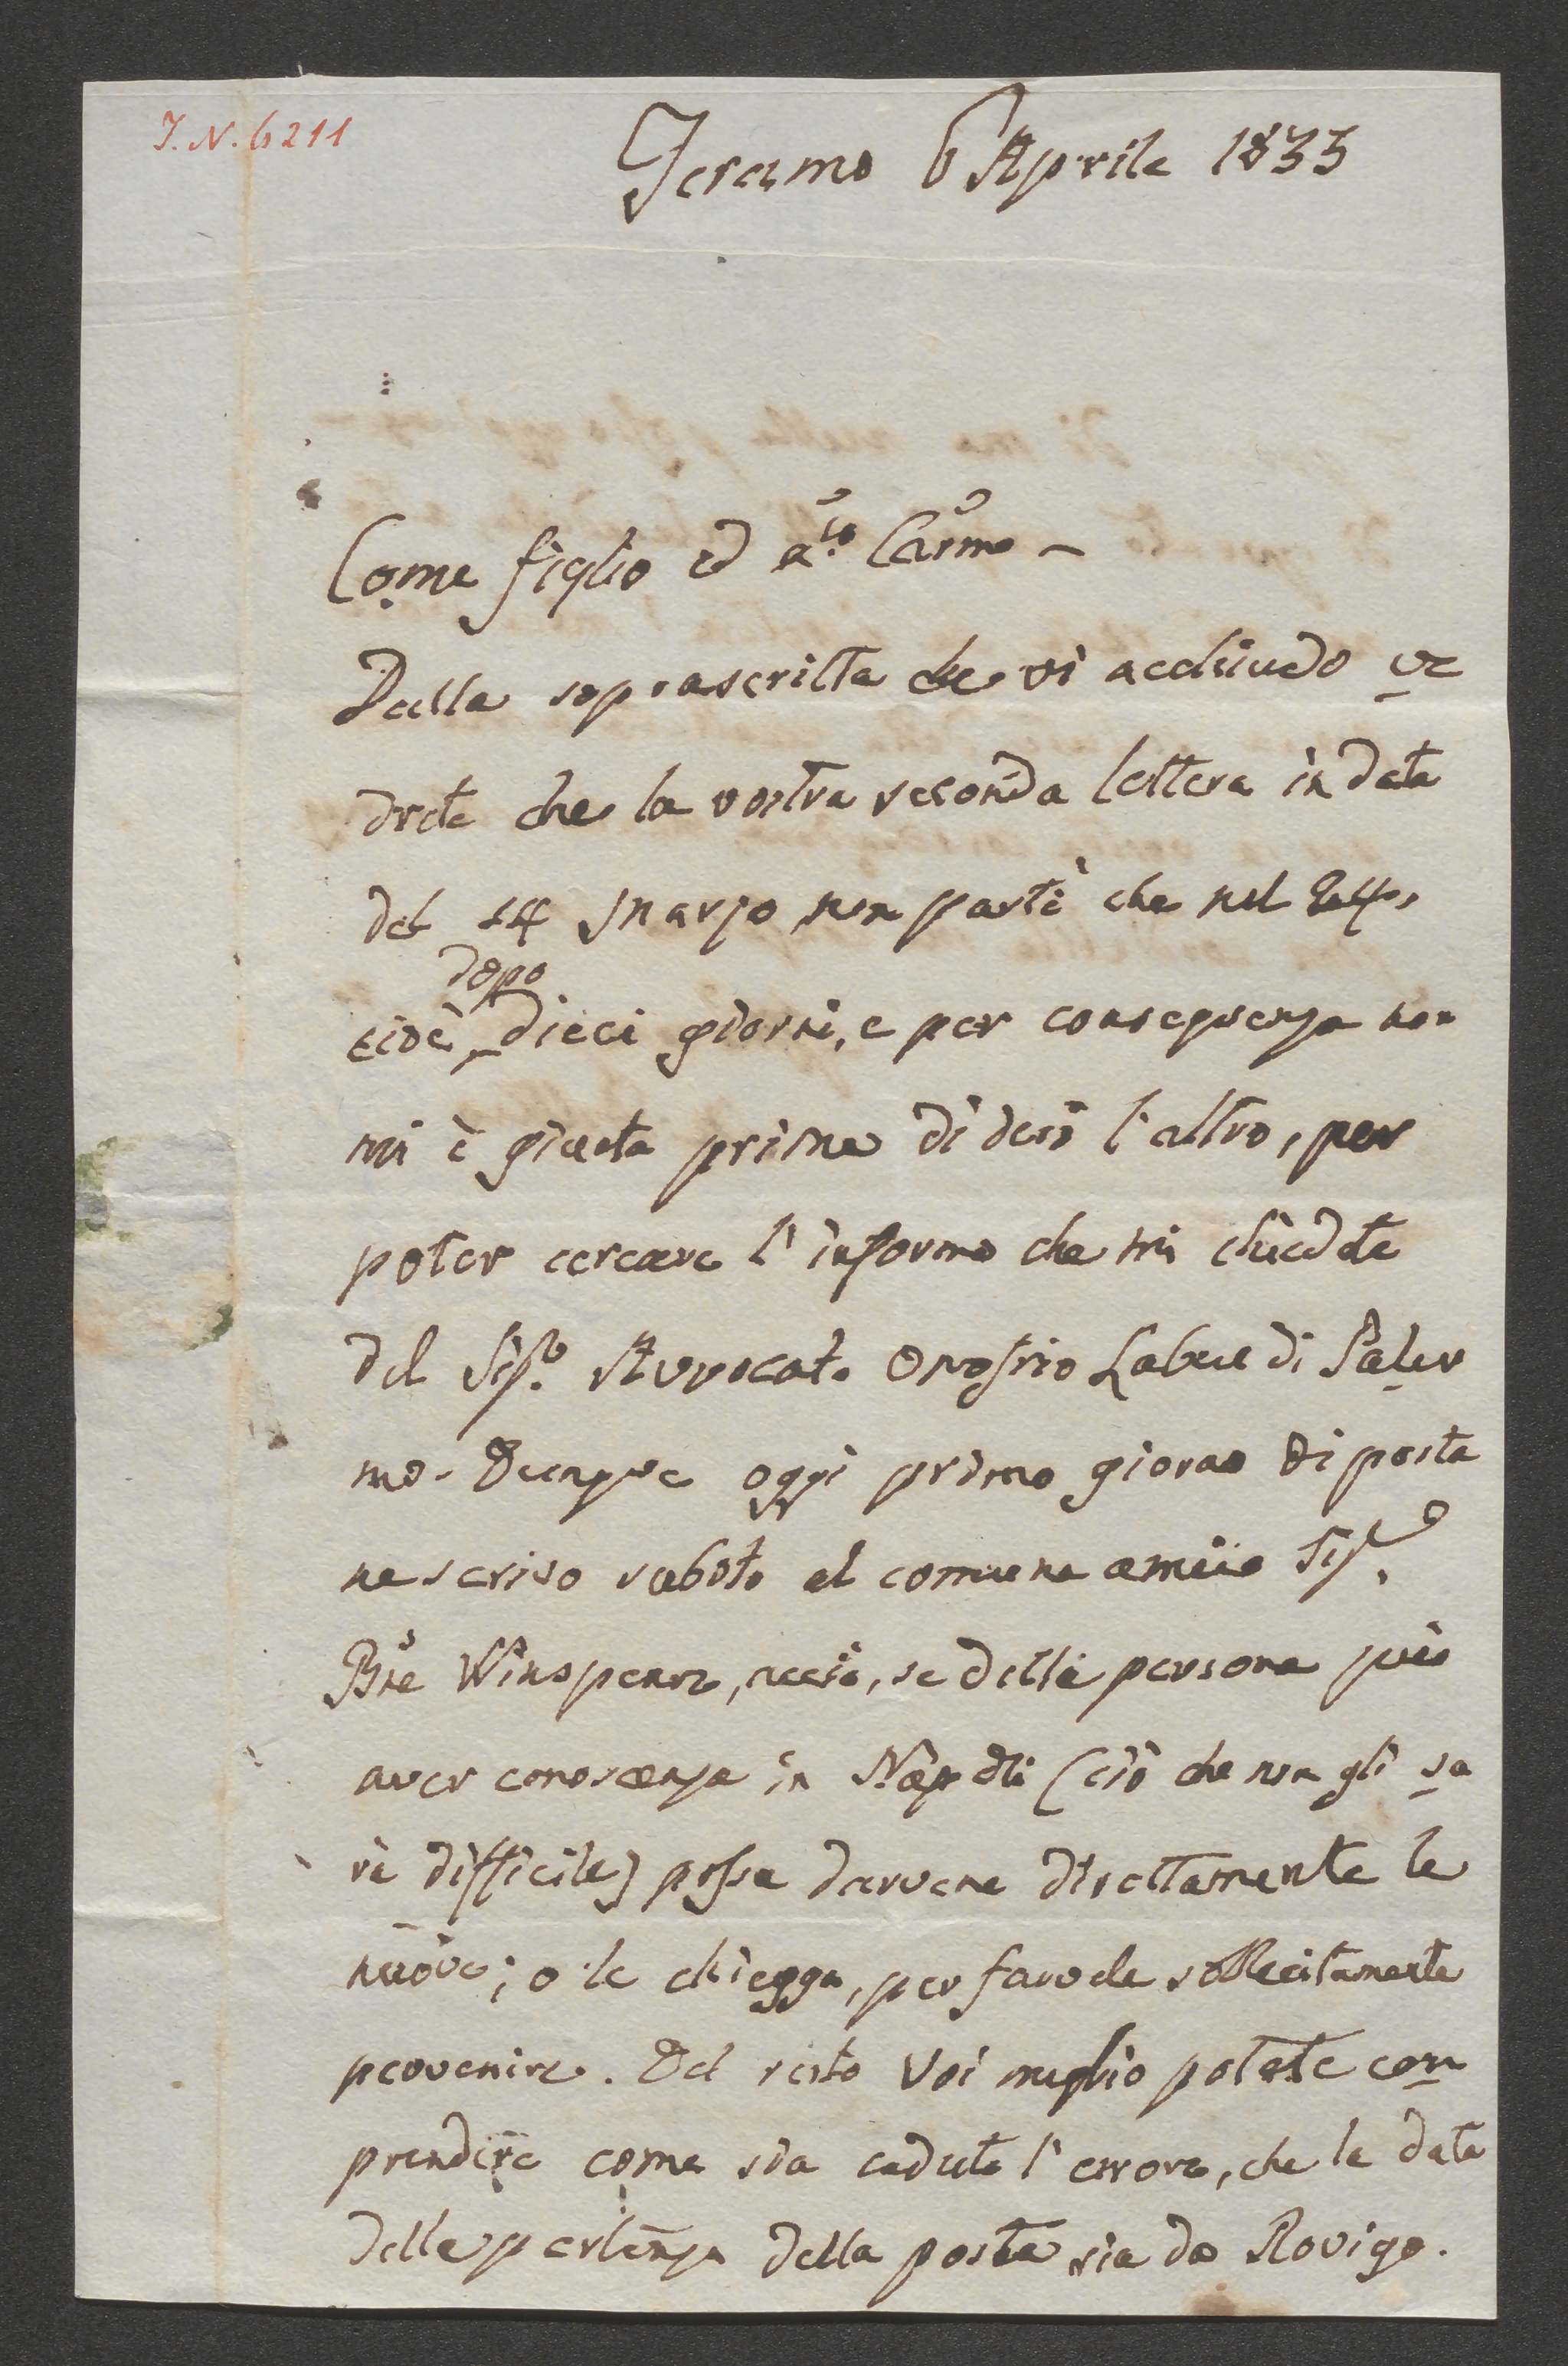 I. N. 6211
Teramo 6 Aprile 1833
Come figlio ed a.co Carmo –
Dalla soprascritta che vi acchiudo ve
drete che la vostra seconda lettera in data
del 14 Marzo non partì che nel 24,
dopo
cioè dieci giorni, e per conseguenza non
mi è giunta prima di jeri l'altro, per
poter cercare l'informo che mi chiedete
del Sigr. Avvocato Onofrio Labue di Paler
mo. Dunque oggi primo giorno di posta
ne scrivo subito al comune amico Sigr.
Bne Winspeare, acciò, se della persona può
aver conoscenza in Napoli (ciò che non gli sa
rà difficile) possa darvene direttamente le
nuove; o le chiegga, per farvele sollecitamente
pervenire. Del resto voi meglio potete com
prendere come sia caduto l'errore, che la data
della partenza della posta sia da Rovigo.